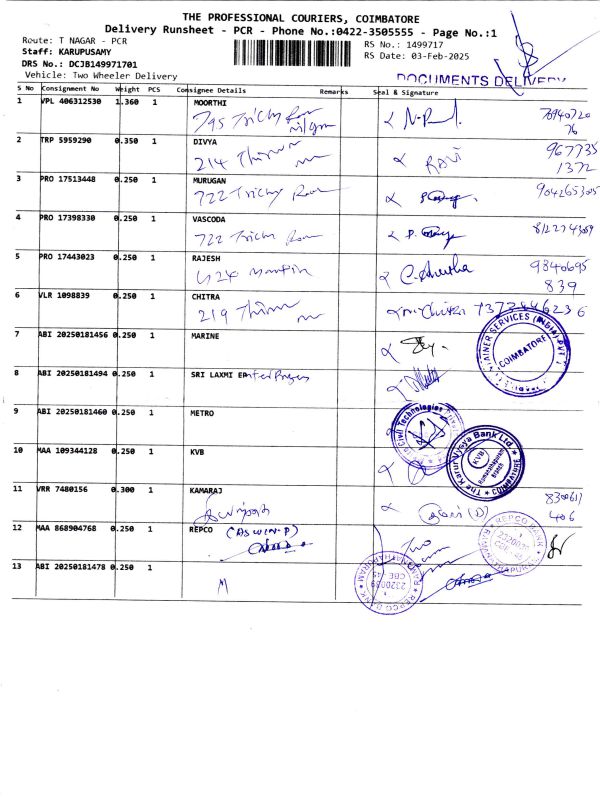 THE PROFESSIONAL COURIERS, COIMBATORE
Delivery Runsheet - PCR - Phone No.:0422-3505555 - Page No.:1
Route: T NAGAR - PCR
RS No.: 1499717
Staff: KARUPUSAMY
RS Date: 03-Feb-2025
DRS No.: DCJB149971701
Vehicle: Two Wheeler Delivery
DOCUMENTS DELIVERY
S No Consignment No Weight PCS Consignee Details Remarks Seal & Signature
1 VPL 406312530 1.360 1 MOORTHI
795 Trichy Road
2 TRP 5959290 0.350 1 DIVYA
214 RAVI 967735
1372
3 PRO 17513448 0.250 1 MURUGAN
722 Trichy Road 9042653015
4 PRO 17398330 0.250 1 VASCODA
722 Trichy Road
5 PRO 17443023 0.250 1 RAJESH
9840695
839
6 VLR 1098839 0.250 1 CHITRA
219 Chitra 7373446236
7 ABI 20250181456 0.250 1 MARINE
AINER SERVICES (INDIA) PVT
COIMBATORE
8 ABI 20250181494 0.250 1 SRI LAXMI ENterPrises
9 ABI 20250181460 0.250 1 METRO
Civil Technologies
10 MAA 109344128 0.250 1 KVB
The Karur Vysya Bank Ltd.
KVB
Ramanathapuram
Branch
COIMBATORE
11 VRR 7480156 0.300 1 KAMARAJ
406
12 MAA 868904768 0.250 1 REPCO (ASWIN-P)
REPCO BANK
2320039
CBE-45
RAMANATHAPURAM
13 ABI 20250181478 0.250 1
REPCO BANK
2320039
CBE 45
RAMANATHAPURAM